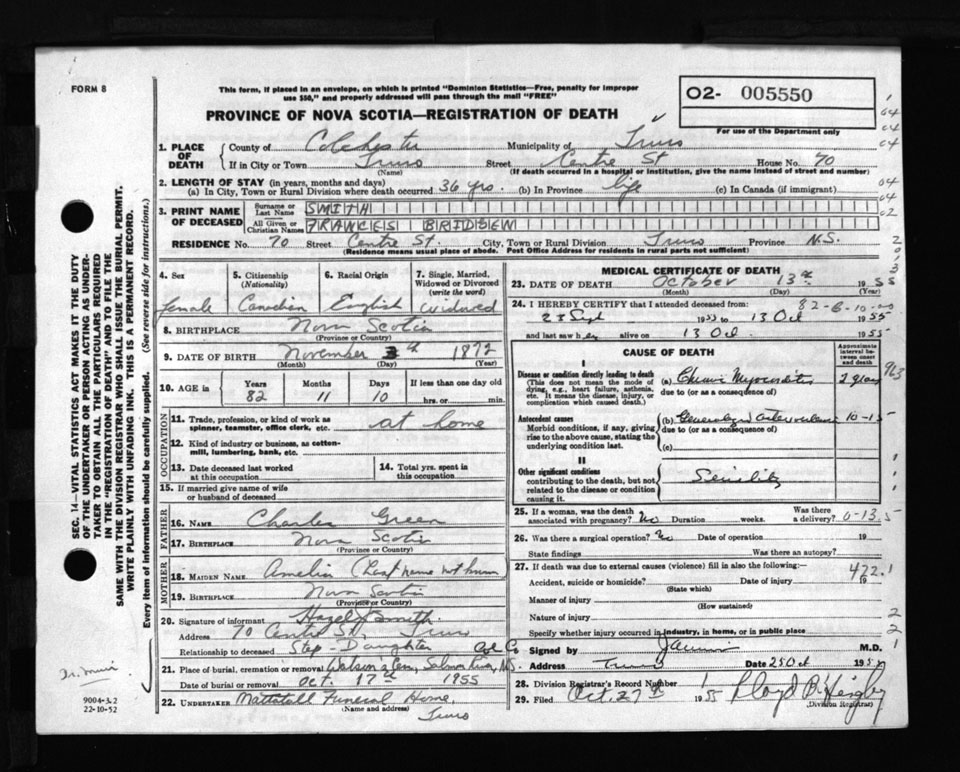 FORM 8
This form, if placed in an envelope, on which is printed "Dominion Statistics—Free, penalty for improper
use $50," and properly addressed will pass through the mail "FREE"
O2- 005550
For use of the Department only
PROVINCE OF NOVA SCOTIA—REGISTRATION OF DEATH
1. PLACE OF DEATH
County of Colchester Municipality of Truro
If in City or Town Truro Street Centre St House No. 70
(Name) (If death occurred in a hospital or institution, give the name instead of street and number)
2. LENGTH OF STAY (in years, months and days)
(a) In City, Town or Rural Division where death occurred 36 yrs. (b) In Province life (c) In Canada (if immigrant)
3. PRINT NAME OF DECEASED
Surname or Last Name SMITH
All Given or Christian Names FRANCES
RESIDENCE No. 70 Street Centre St. City, Town or Rural Division Truro Province N.S.
(Residence means usual place of abode. Post Office Address for residents in rural parts not sufficient)
4. Sex
female
5. Citizenship (Nationality)
Canadian
6. Racial Origin
English
7. Single, Married, Widowed or Divorced (write the word)
widowed
8. BIRTHPLACE Nova Scotia
(Province or Country)
9. DATE OF BIRTH November 3th 1872
(Month) (Day) (Year)
10. AGE in
Years 82
Months 11
Days 10
If less than one day old
hrs. or min.
OCCUPATION
11. Trade, profession, or kind of work as spinner, teamster, office clerk, etc. at home
12. Kind of industry or business, as cotton-mill, lumbering, bank, etc.
13. Date deceased last worked at this occupation
14. Total yrs. spent in this occupation
15. If married give name of wife or husband of deceased
FATHER
16. NAME Charles Green
17. BIRTHPLACE Nova Scotia
(Province or Country)
MOTHER
18. MAIDEN NAME Amelia (Last name not known
19. BIRTHPLACE Nova Scotia
(Province or Country)
20. Signature of informant Hazel Smith
Address 70 Centre St. Truro
Relationship to deceased Step-Daughter Col Co
21. Place of burial, cremation or removal Watson Cem, Salmon River, N.S.
Date of burial or removal Oct. 17th 1955
22. UNDERTAKER Mattatall Funeral Home,
(Name and address)
Truro
MEDICAL CERTIFICATE OF DEATH
23. DATE OF DEATH October 13th 1955
(Month) (Day) (Year)
24. I HEREBY CERTIFY that I attended deceased from: 82-6-10
23 Sept 1955 to 13 Oct 1955
and last saw her alive on 13 Oct 1955
CAUSE OF DEATH
Approximate interval between onset and death
I
Disease or condition directly leading to death
(This does not mean the mode of dying, e.g., heart failure, asthenia, etc. It means the disease, injury, or complication which caused death.)
(a) Chronic Myocarditis 2 years
due to (or as a consequence of)
Antecedent causes
Morbid conditions, if any, giving rise to the above cause, stating the underlying condition last.
(b) Generalized 10-15
due to (or as a consequence of)
(c)
II
Other significant conditions
contributing to the death, but not related to the disease or condition causing it.
Senility
25. If a woman, was the death associated with pregnancy? No Duration weeks. Was there a delivery?
26. Was there a surgical operation? No Date of operation 19
State findings Was there an autopsy?
27. If death was due to external causes (violence) fill in also the following:
422.1
Accident, suicide or homicide? Date of injury 19
(State which)
Manner of injury
(How sustained)
Nature of injury
Specify whether injury occurred in industry, in home, or in public place
Signed by M.D.
Address Truro Date 25 Oct 195
28. Division Registrar's Record Number
29. Filed Oct. 27th 1955 Lloyd B.
(Division Registrar)
SEC. 14—VITAL STATISTICS ACT MAKES IT THE DUTY
OF THE UNDERTAKER OR PERSON ACTING AS UNDER-
TAKER TO OBTAIN ALL THE PARTICULARS REQUIRED
IN THE "REGISTRATION OF DEATH" AND TO FILE THE
SAME WITH THE DIVISION REGISTRAR WHO SHALL ISSUE THE BURIAL PERMIT.
WRITE PLAINLY WITH UNFADING INK. THIS IS A PERMANENT RECORD.
Every item of information should be carefully supplied. (See reverse side for instructions.)
9004-3.2
22-10-52